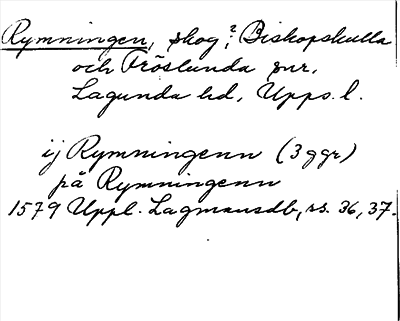 Rymningen, skog, ? Biskopskulla
och Fröslunda snr.
Lagunda hd, Upps. l.
ij Rymningenn (3 ggr)
på Rymningenn
1579 Uppl. Lagmansdb, ss. 36, 37.